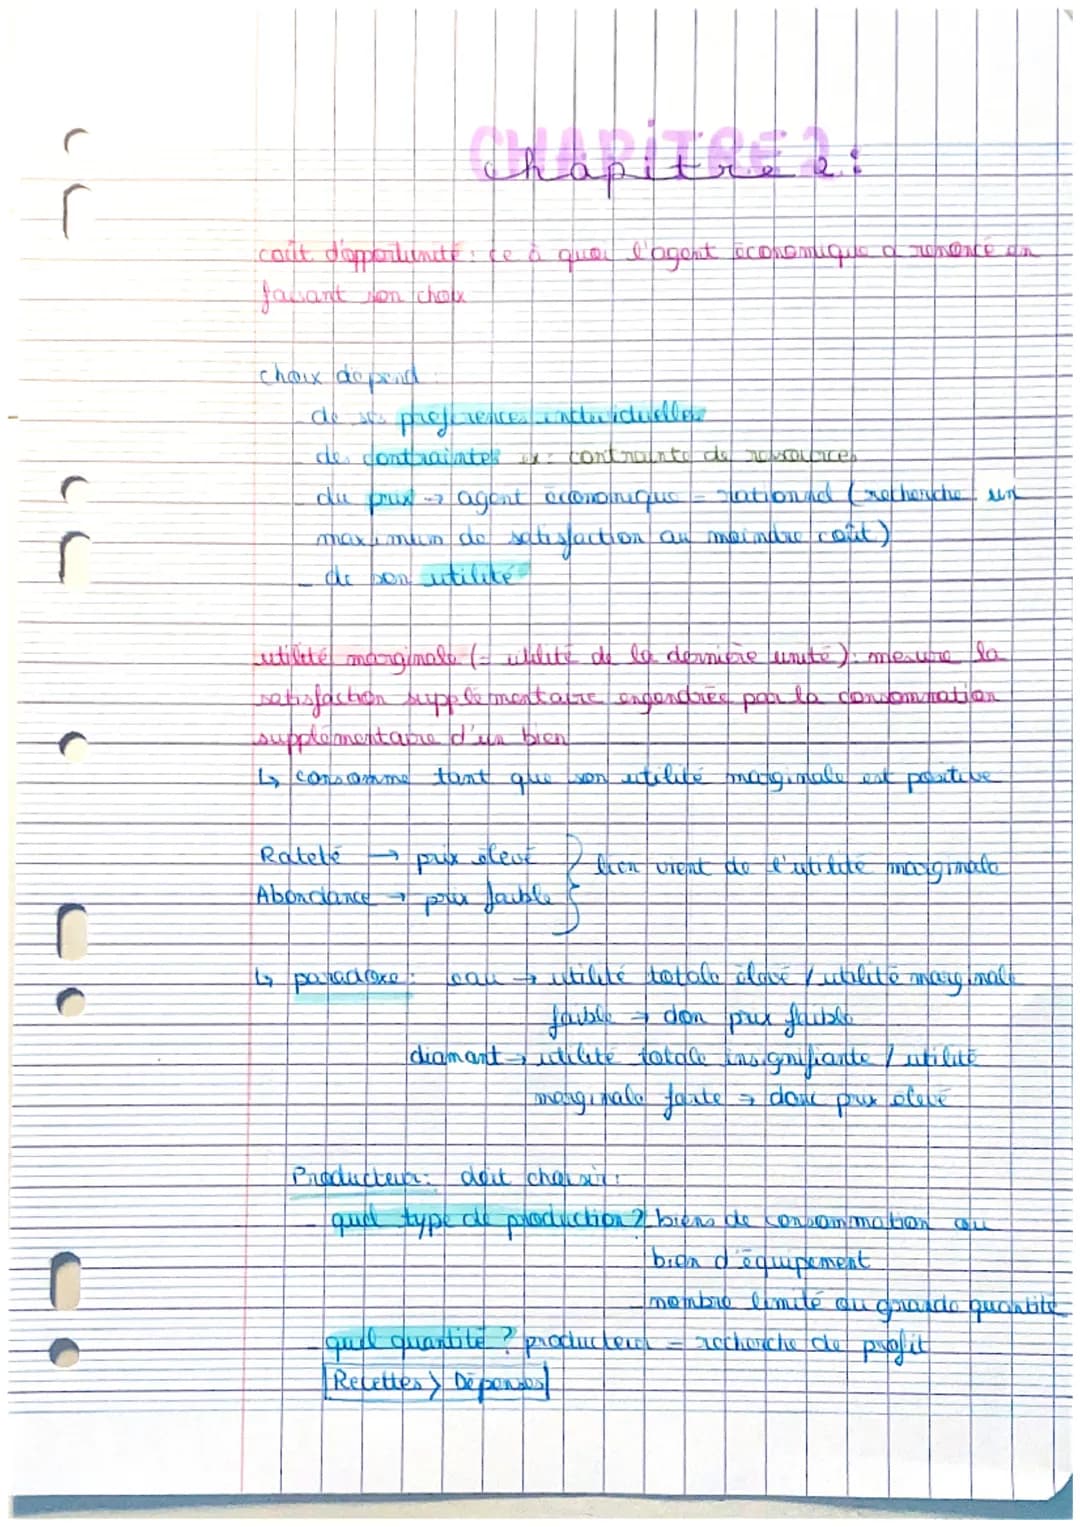 CHAPITRE 2
chapitre 2 :
coût d'opportunité : ce à quoi l'agent économique a renoncé en
faisant son choix
choix dépend :
- de ses préférences individuelles
- des contraintes ex : contrainte de ressources
- du prix → agent économique = rationnel (recherche un
maximum de satisfaction au moindre coût)
- de son utilité
utilité marginale (= utilité de la dernière unité) : mesure la
satisfaction supplémentaire engendrée par la consommation
supplémentaire d'un bien
↳ consomme tant que son utilité marginale est positive
Rateté → prix élevé } lien vient de l'utilité marginale
Abondance → prix faible
↳ paradoxe : eau → utilité totale élevé / utilité marginale
faible → don prix faible
diamant → utilité totale insignifiante / utilité
marginale forte → donc prix élevé
Producteur : doit choisir :
- quel type de production ? biens de consommation ou
bien d'équipement
nombre limité ou grande quantité
- quel quantité ? producteur = recherche de profit
Recettes > Dépenses